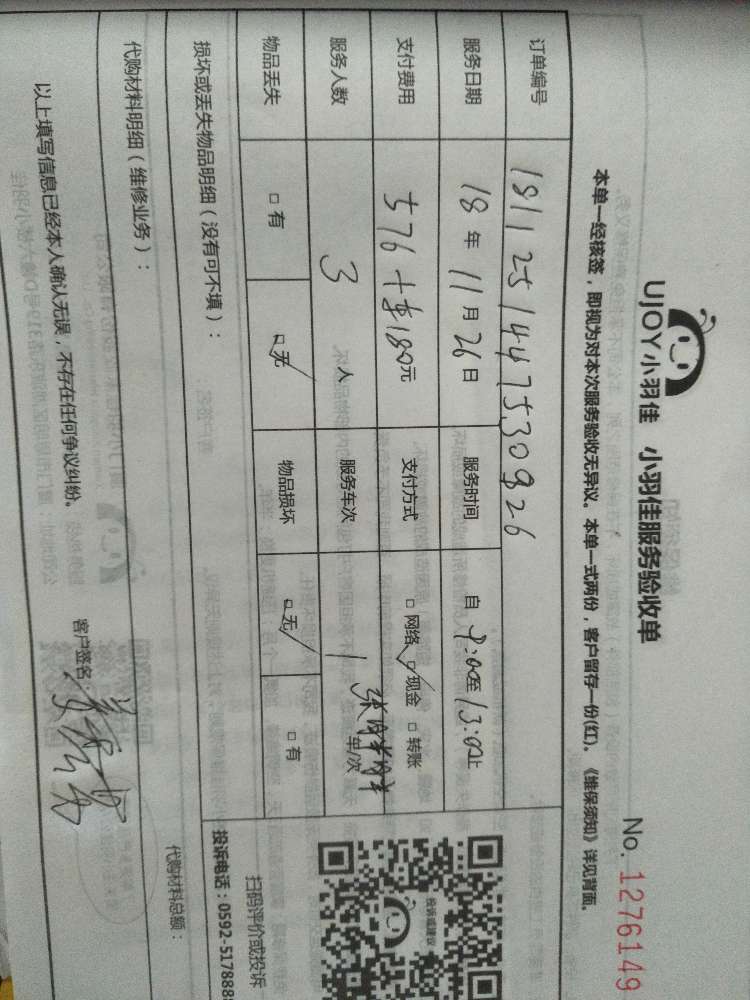 UJOY小羽佳 小羽佳服务验收单
No. 1276149
本单一经核签，即视为对本次服务验收无异议。本单一式两份，客户留存一份(红)。《维保须知》详见背面。
订单编号 18112514475309826
服务日期 18年11月26日 服务时间 自9:00至13:00止
支付费用 576+车180元 支付方式 □网络 ☑现金 □转账
服务人数 3人 服务车次 1 车/次
物品丢失 □有 ☑无 物品损坏 ☑无 □有
损坏或丢失物品明细（没有可不填）：
代购材料明细（维修业务）：
代购材料总额：
以上填写信息已经本人确认无误，不存在任何争议纠纷。
客户签名：
投诉或建议
扫码评价或投诉
投诉电话：0592-5178888